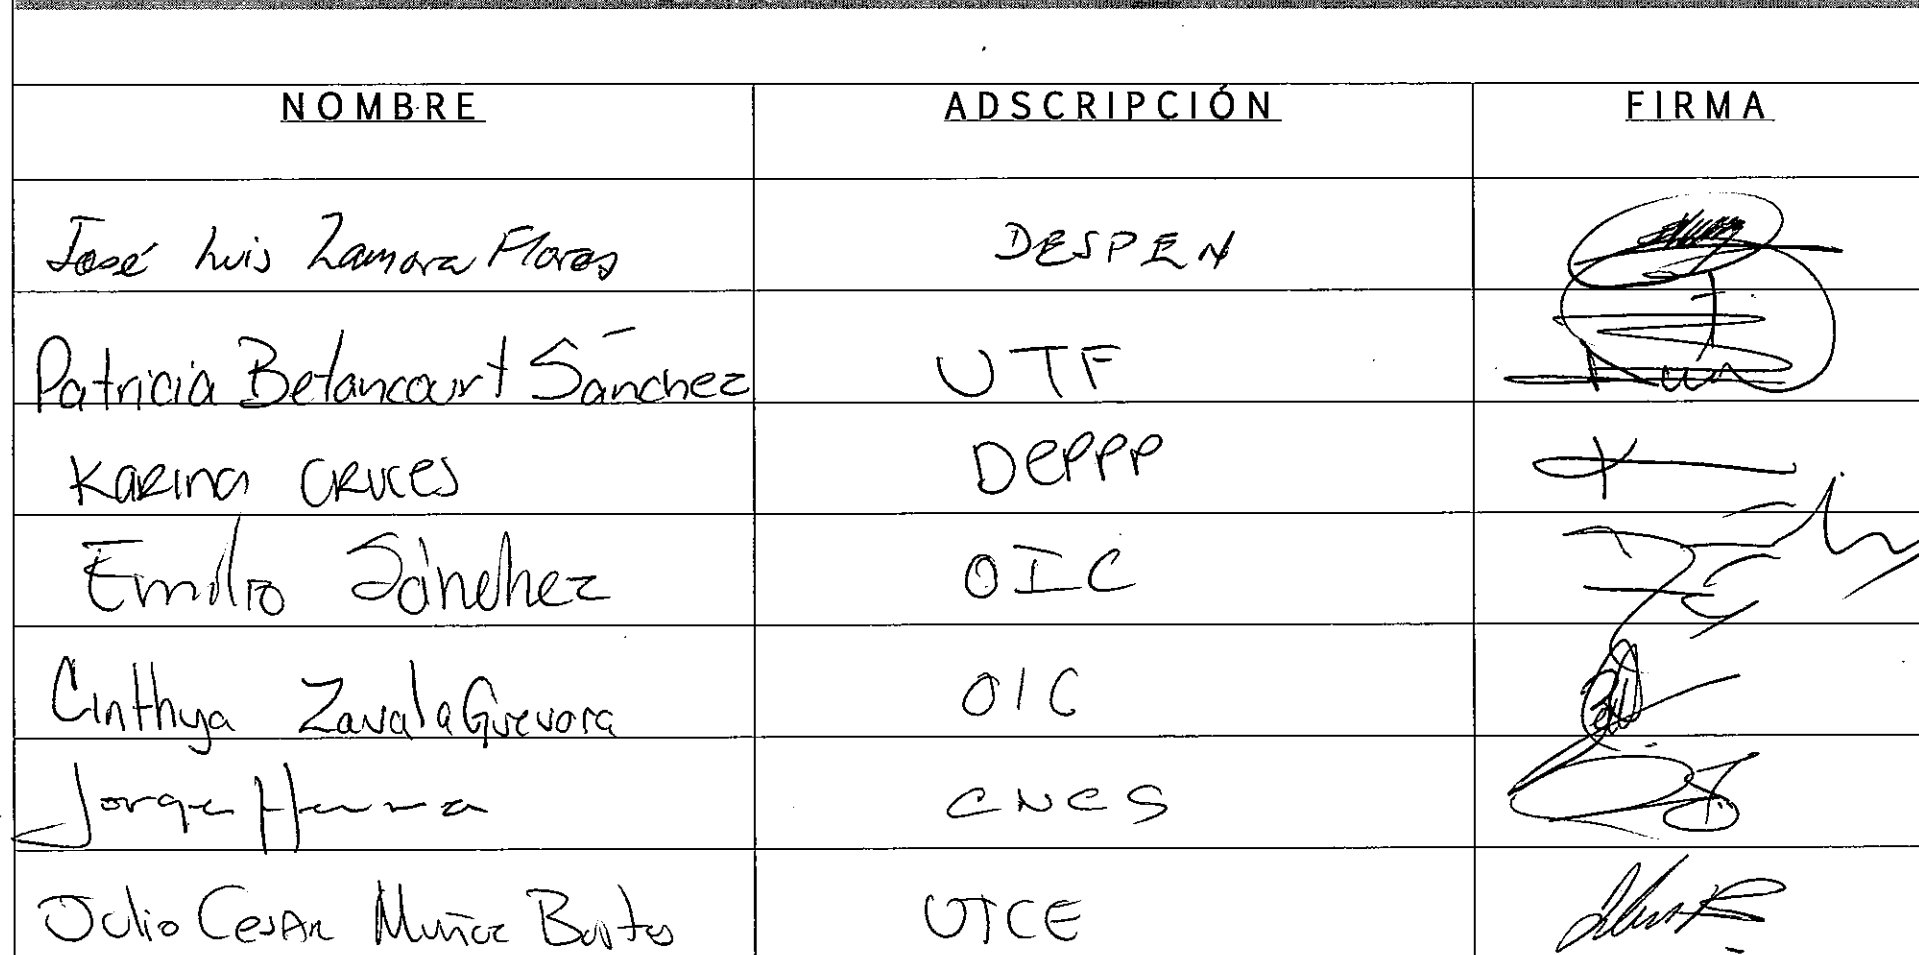 NOMBRE ADSCRIPCIÓN FIRMA
José Luis Zamora Flores DESPEN
Patricia Betancourt Sánchez UTF
Karina Cruces DEPPP
Emilio Sánchez OIC
Cinthya Zavala Guevara OIC
Jorge CNCS
Julio Cesar Muñoz UTCE